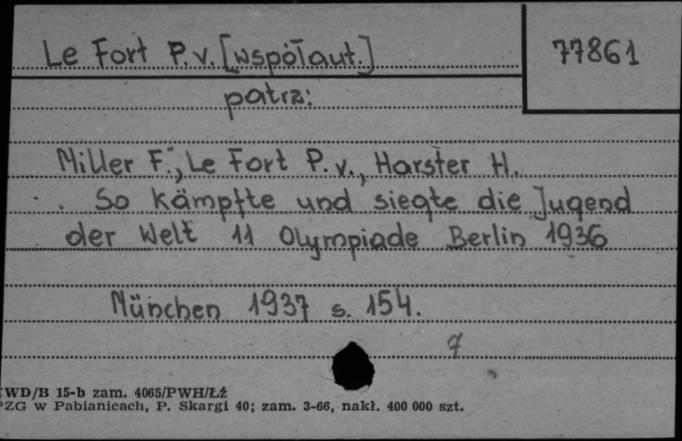 Le Fort P. v. [współaut.]
77861
patrz:
Miller F., Le Fort P. v., Harster H.
So kämpfte und siegte die Jugend
der Welt 11 Olympiade Berlin 1936
München 1937 s. 154.
7
CWD/B 15-b zam. 4065/PWH/Łź
PZG w Pabianicach, P. Skargi 40; zam. 3-66, nakł. 400 000 szt.